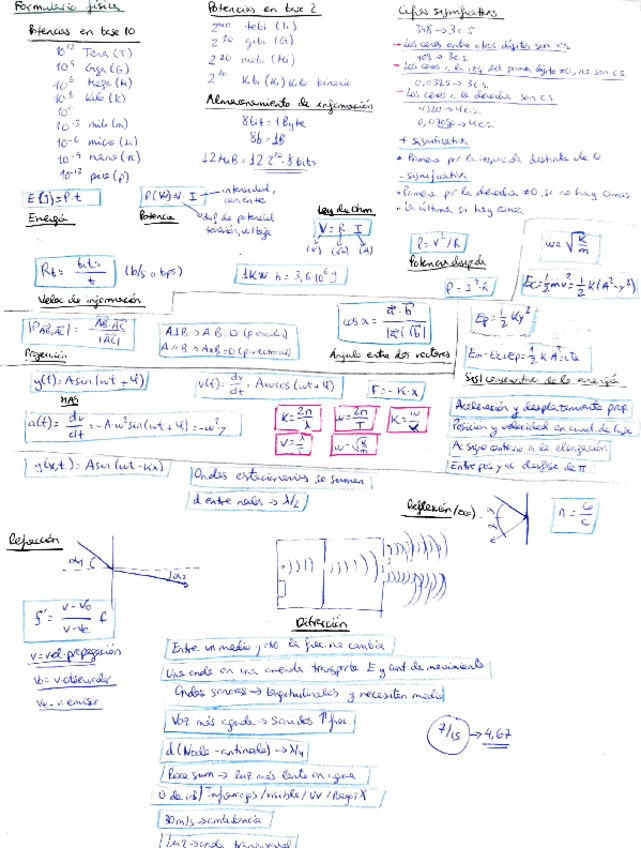 Formulario física
Potencias en base 10
10^12 Tera (T)
10^9 Giga (G)
10^6 Mega (M)
10^3 Kilo (K)
10^0
10^-3 mili (m)
10^-6 micro (μ)
10^-9 nano (n)
10^-12 pico (p)
Potencias en base 2
2^40 tebi (Ti)
2^30 gibi (Gi)
2^20 mebi (Mi)
2^10 Kibi (Ki) Kilo binario
Almacenamiento de información
8bit = 1Byte
8b = 1B
12MiB = 12·2^20·8 bits
Cifras significativas
348 → 3c.S
- Los ceros entre otros dígitos son c.s.
→ 3c.s.
- Los ceros a la izq. del primer dígito ≠0, no son c.s.
0,0325 → 3c.s.
- Los ceros a la derecha son c.s.
4320 → 4c.s.
→ 4c.s.
+ significativa
• Primera por la izquierda distinta de 0.
- significativa
• Primera por la derecha ≠0, si no hay comas
• La última si hay comas.
E(J) = P·t
Energía
P(W) = V·I
intensidad, corriente
dif de potencial
tensión, voltaje
Potencia
Ley de Ohm
V = R·I
(V) (Ω) (A)
P = V²/R
Potencia disipada
P = I²·R
w = √(K/m)
Ec = ½mv² = ½K(A²-y²)
Rb = bits/t (b/s o bps)
Veloc de información
1KW·h = 3,6·10^6 J
|P AB,AC| = AB·AC/|AC|
Proyección
A⊥B → A·B = 0 (p. escalar)
A∥B → AxB = 0 (p. vectorial)
cos α = a·b/|a|·|b|
Ángulo entre dos vectores
Ep = ½Ky²
Em = Ec+Ep = ½K·A² = cte
conservativo de la energía
y(t) = A sin(wt+φ)
MAS
v(t) = dy/dt = Aw cos(wt+φ)
F = -K·x
a(t) = dv/dt = -A·w² sin(wt+φ) = -w²
K = 2π/λ
w = 2π/T
K = w/v
w = √(K/m)
Aceleración y desplazamiento prop.
Posición y velocidad en
Ac signo contrario a la elongación
Entre pos y ac desfase de π
y(x,t) = A sin(wt-Kx)
Ondas estacionarias se suman
d entre nodos → λ/2
Reflexión
α
n = c₀/c
Refracción
α1
α2
f' = (v-v₀)/(v-ve) f
v = vel. propagación
vo = v. observador
ve = v. emisor
Difracción
Entre un medio y otro la frec. no cambia
Una onda en una cuerda transporta E y cant. de movimiento
Ondas sonoras → longitudinales y necesitan medio
Voz más aguda → sonidos ↑frec.
d(Nodo-antinodo) → λ/4
→ luz más lenta en agua
7/15 → 4,67
/visible/UV/Rayos X
Luz → onda transversal